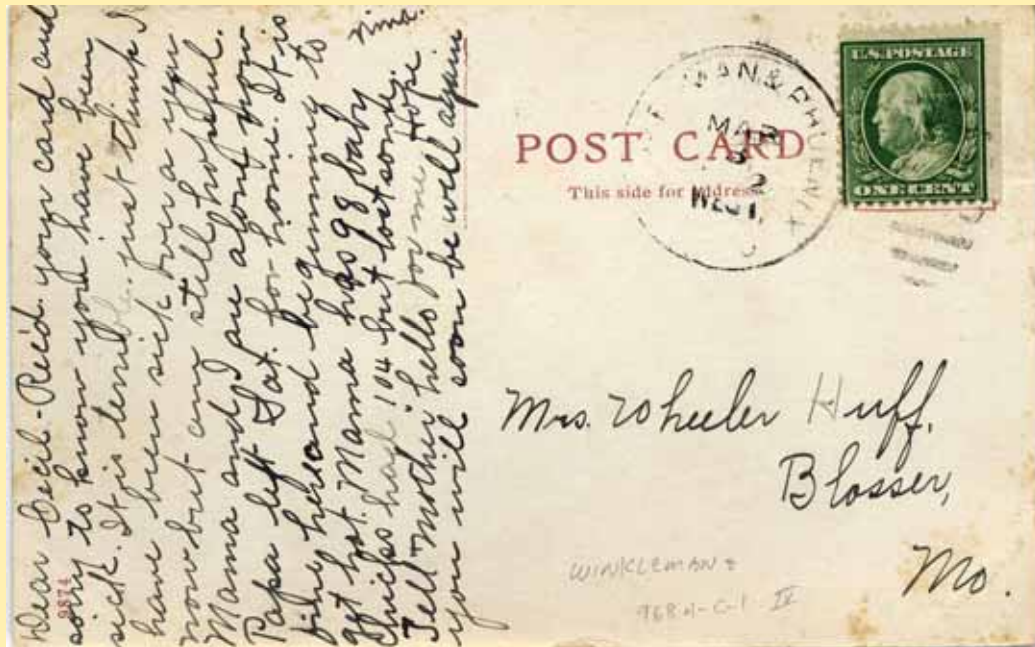 Dear Cecil - Rec'd. your card and
sorry to know you have been
sick. It is terrible. just think I
have been sick over a year
now but am still hopeful.
Mama and I are alone now
Papa left Sat. for home. It is
fine here and beginning to
get hot. Mama has 98 baby
chicks had 104 but lost some.
Tell Mother hello for me Hope
you will soon be well again
Nina.
9874
POST CARD
This side for address
MAN. & PHOENIX
MAR
3
2
WEST.
U.S. POSTAGE
ONE CENT
Mrs. Wheeler Huff,
Blosser,
Mo.
WINKLEMAN &
968.1-C-1 IV